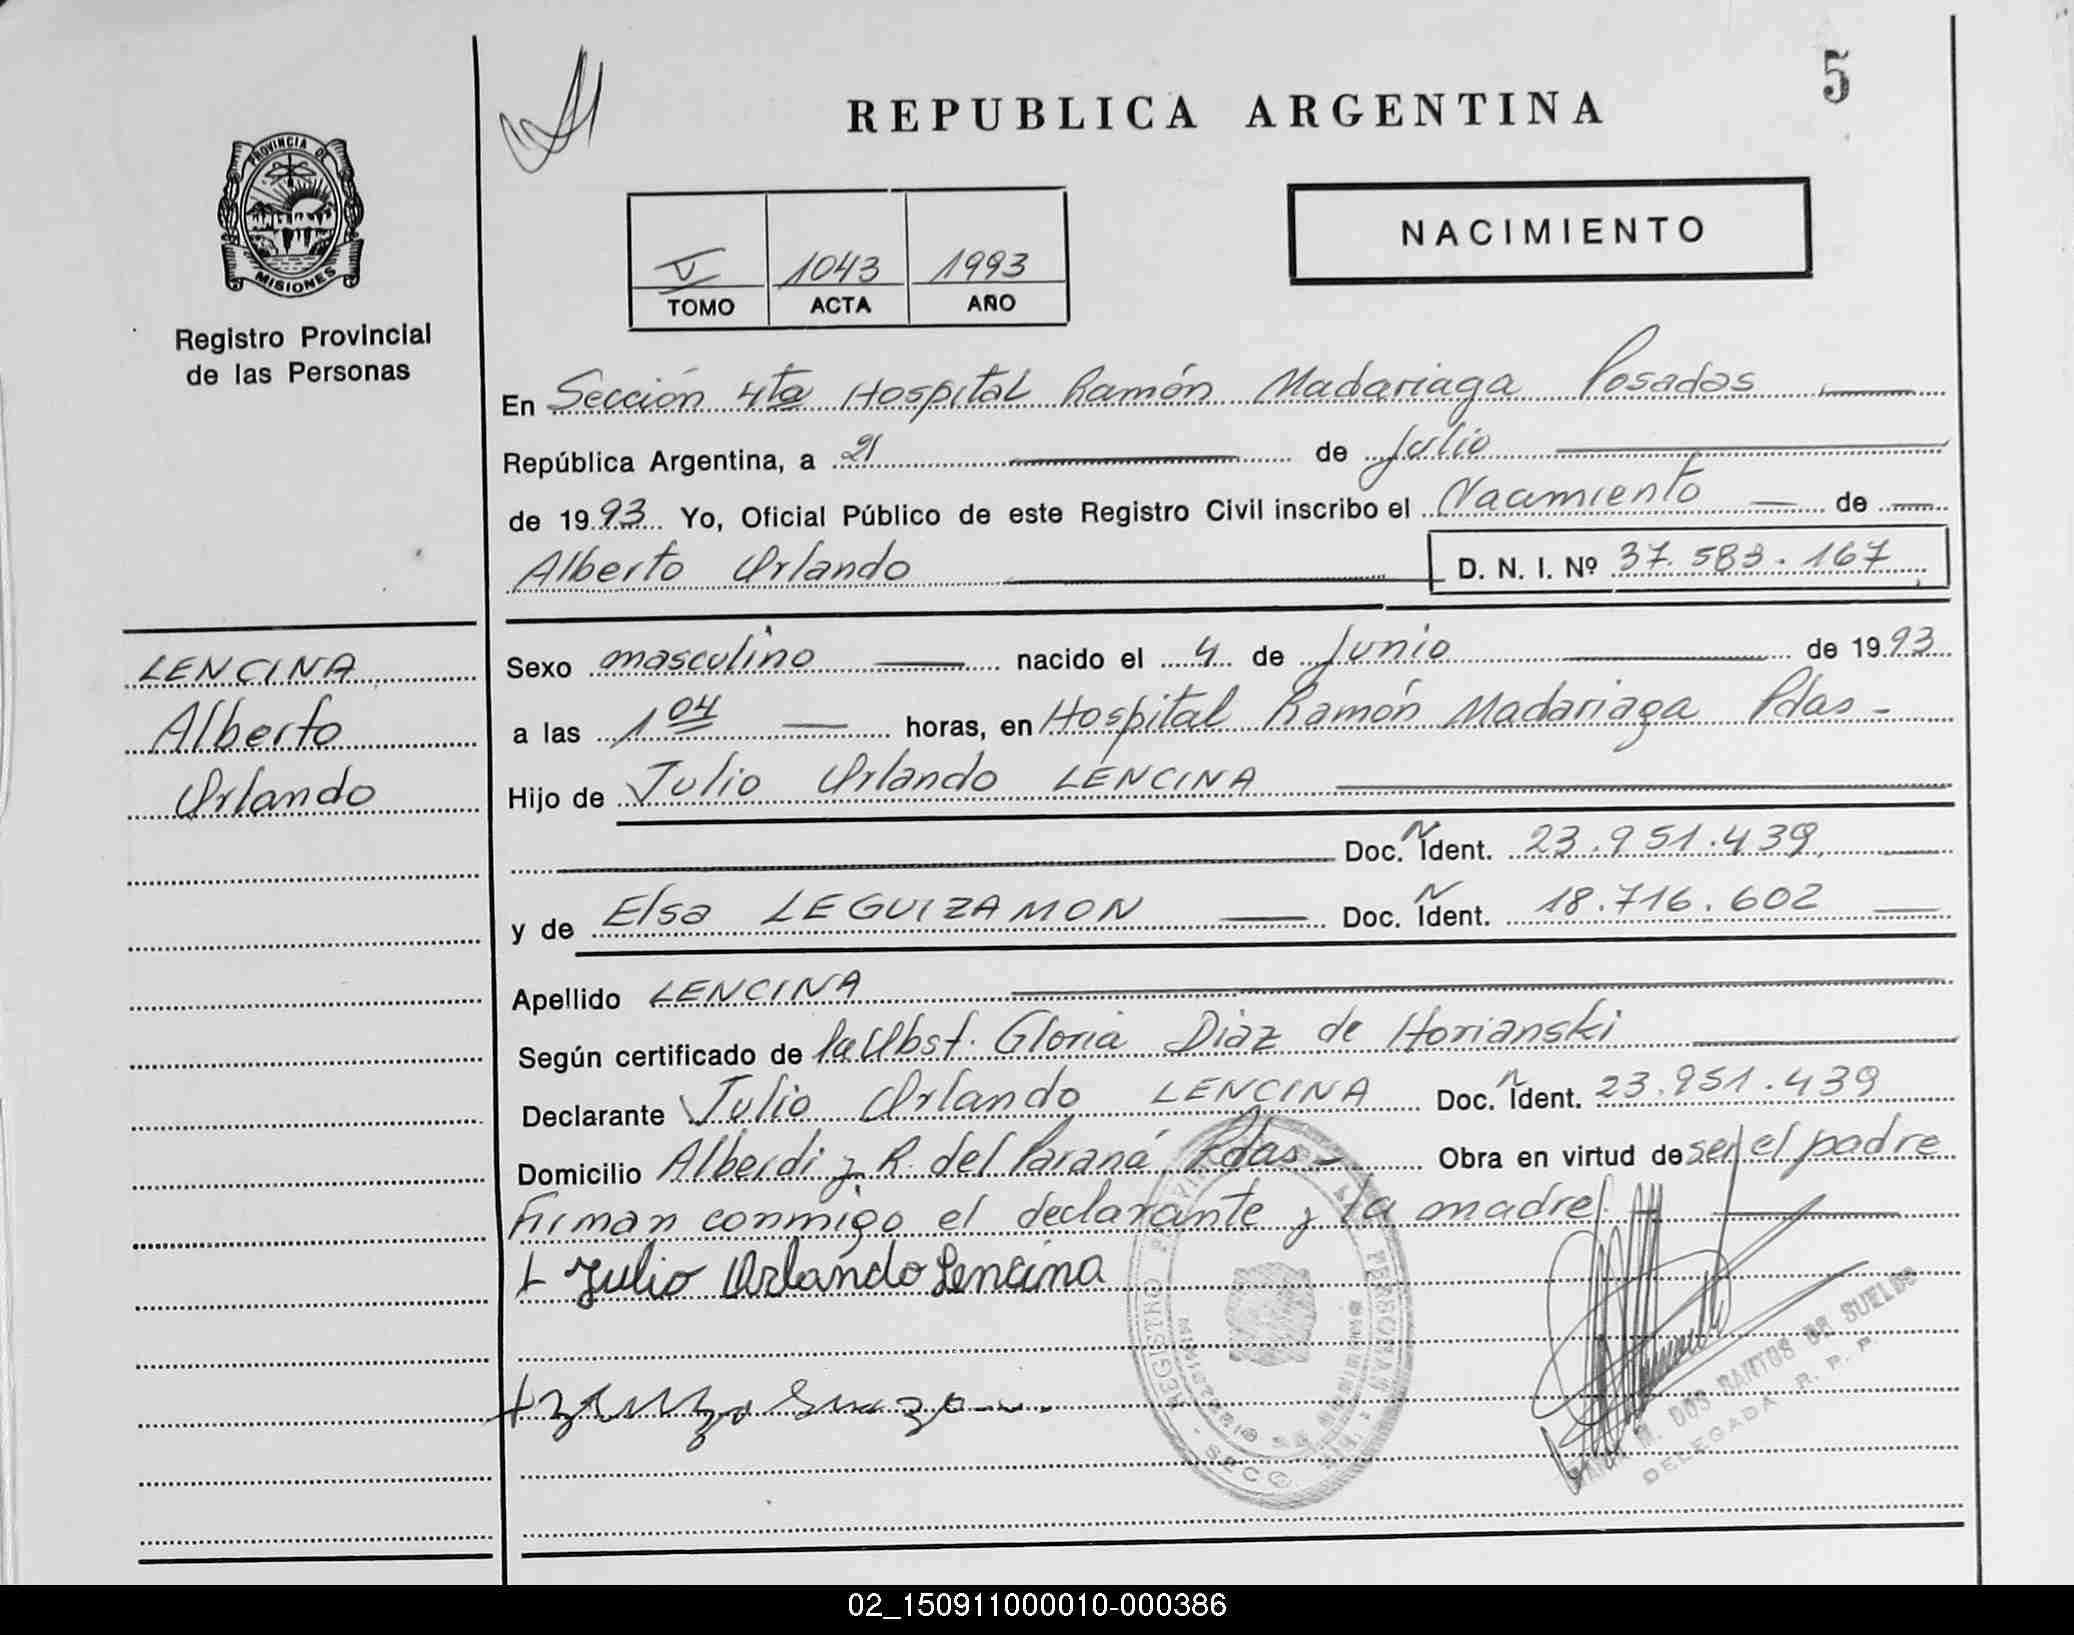 5
REPUBLICA ARGENTINA
NACIMIENTO
PROVINCIA DE
MISIONES
Registro Provincial
de las Personas
V 1043 1993
TOMO ACTA AÑO
En Sección 4ta Hospital Ramón Madariaga Posadas
República Argentina, a 21 de Julio
de 1993 Yo, Oficial Público de este Registro Civil inscribo el Nacimiento de
Alberto Orlando D. N. I. Nº 37.583.167
LENCINA
Alberto
Orlando
Sexo masculino nacido el 4 de Junio de 1993
a las 1 04 horas, en Hospital Ramón Madariaga Pdas -
Hijo de Julio Orlando LENCINA
Doc. N Ident. 23.951.439
y de Elsa LEGUIZAMON Doc. N Ident. 18.716.602
Apellido LENCINA
Según certificado de la Obst. Gloria Diaz de Horianski
Declarante Julio Orlando LENCINA Doc. N Ident. 23.951.439
Domicilio Alberdi y R. del Paraná Pdas - Obra en virtud de ser el padre
Firman conmigo el declarante y la madre.
Julio Orlando Lencina
REGISTRO PERSONAS
M. DOS SANTOS DE SUELDO
DELEGADA R. P. P.
02_150911000010-000386